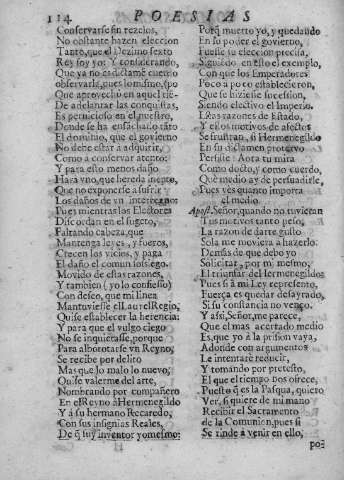 114 POESIAS
Conservarse sin rezelos,
No obstante hazen eleccion
Tanto, que el Dezimo sexto
Rey soy yo: Y considerando,
Que ya no es dictamẽ cuerdo
observarle, pues lo mismo, (po
Que aprovechò en aquel tiẽ-
De adelantar las conquistas,
Es pernicioso en el nuestro,
Donde se ha ensachado tãto
El dominio, que el govierno
No deve estàr à adquirir,
Como a conservar atento:
Y para esto menos daño
Harà vno, que hereda inepto,
Que no exponerse a sufrir
Los daños de vn interregno:
Pues mientras los Electores
Discordan en el sugeto,
Faltando cabeça, que
Mantenga leyes, y fueros,
Crecen los vicios, y paga
El daño el comun sosiego.
Movido de estas razones,
Y tambien (yo lo confiesso)
Con deseo, que mi linea
Mantuviesse el Laurel Regio,
Quise establecer la herencia:
Y para que el vulgo ciego
No se inquietasse, porque
Para alborotarse vn Reyno,
Se recibe por delito
Mas que lo malo lo nuevo,
Quise valerme del arte,
Nombrando por compañero
En el Reyno à Hermenegildo
Y à su hermano Recaredo,
Con sus insignias Reales,
De q̃ soy inventor yo mesmo:
Porq̃ muerto yo, y quedando
En su poder el govierno,
Fuesse su eleccion precisa,
Siguiẽdo en esto el exemplo,
Con que los Emperadores
Poco a poco establecieron,
Que se hiziesse sucession,
Siendo electivo el Imperio.
Estas razones de Estado,
Y ellos motivos de afectos
Se frustran, si Hermenegildo
En su dictamen protervo
Persiste: Aora tu mira
Como docto, y como cuerdo,
Què medio ay de persuadirle,
Pues ves quanto importa
el medio.
Apost. Señor, quando no tuvieran
Tus motivos tanto peso,
La razon de darte gusto
Sola me moviera a hazerlo:
Demàs de que debo yo
Solicitar, por mi mesmo,
El triunfar del Hermenegildo:
Pues si à mi Ley represento,
Fuerça es quedar desayrado,
Si su constancia no venço,
Y assi, Señor, me parece,
Que el mas acertado medio
Es, que yo à la prision vaya,
Adonde con argumentos
Le intentarè reducir,
Y tomando por pretesto,
El que el tiempo nos ofrece,
Puesto q̃ es la Pasqua, quiero
Ver, si quiere de mi mano
Recibir el Sacramento
de la Comunion, pues si
Se rinde à venir en ello,
H
po: